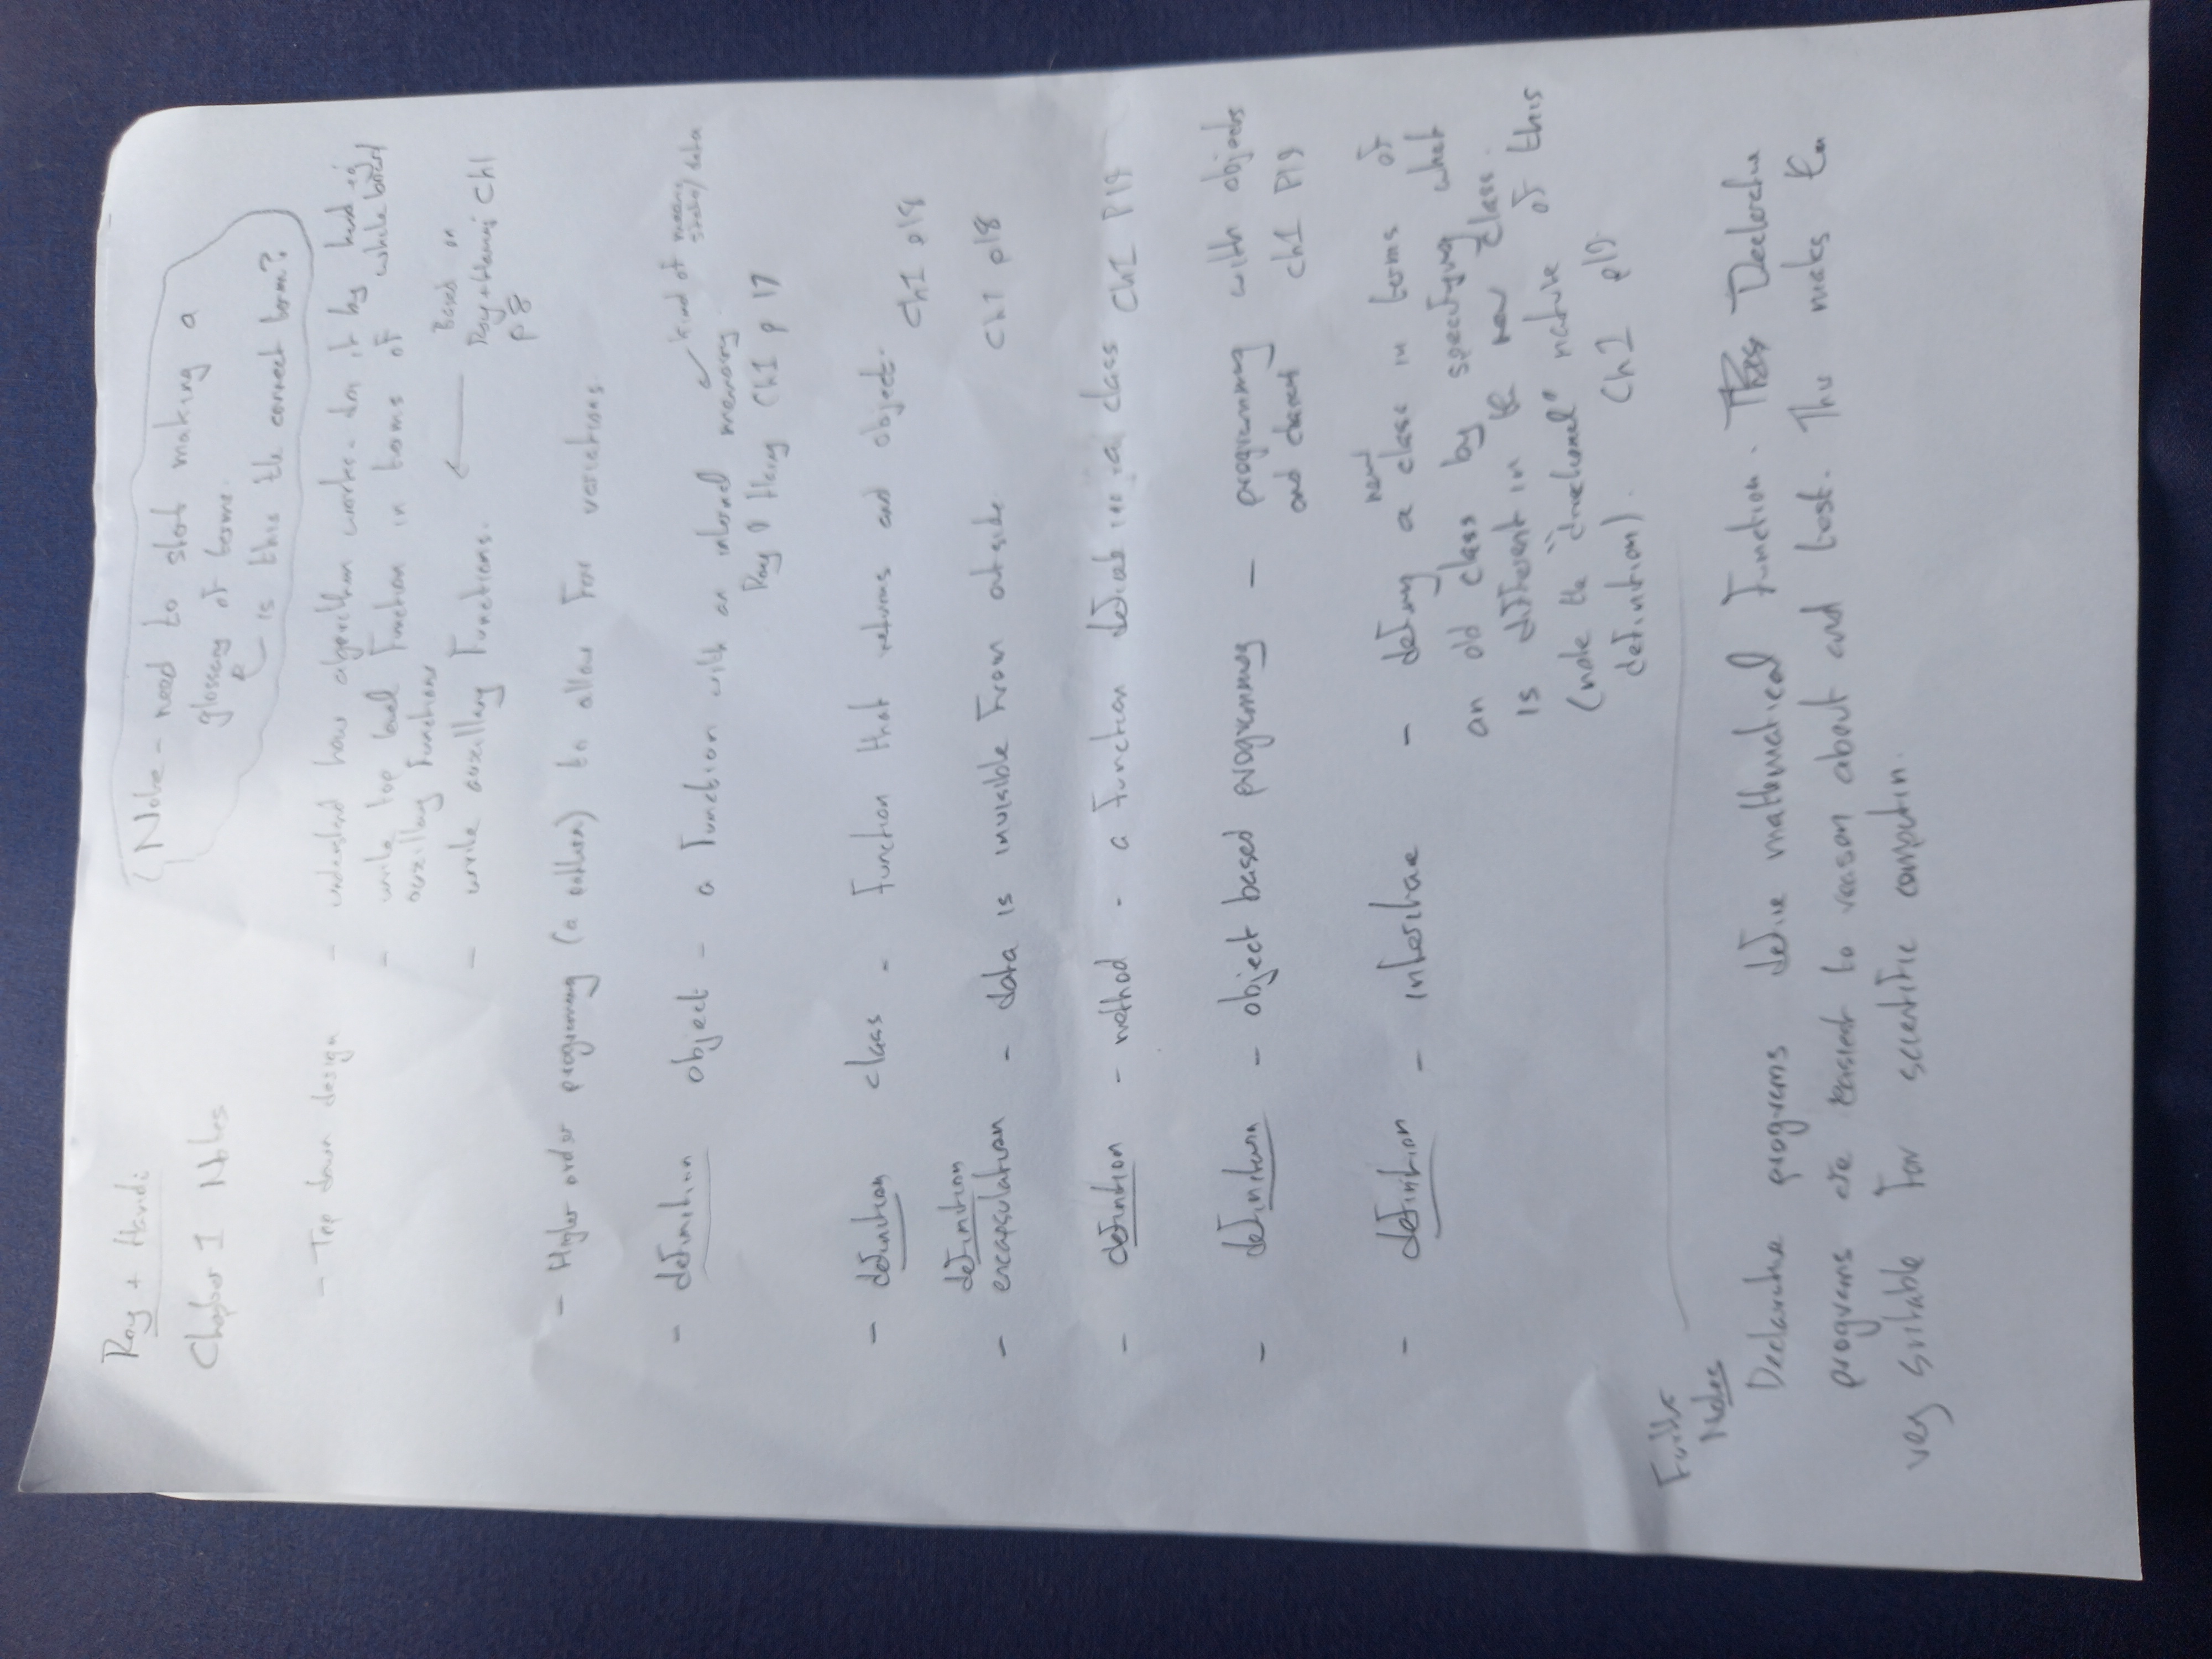 Roy + Haridi
Chapter 1 Notes
Note - need to start making a
glossary of terms.
is this the correct term?
- Top down design - understand how algorithm works. do it by hand eg
whiteboard
- write top level function in terms of
auxillary functions
- write auxillary functions.
Based on
Roy + Ch1
p8
- Higher order programming (a pattern) to allow for variations
- definition object - a function with an internal memory
kind of means
state/data
Roy & Ch1 p 17
- definition class - function that returns and object.
Ch1 p18
definition
- encapsulation - data is invisible from outside Ch1 p18
- definition - method - a function defined in a class Ch1 P19
- definition - object based programming - programming with objects
and classes Ch1 P19
- definition - inheritance - defining a new class in terms of
an old class by specifying what
is different in the new class.
(note the "directional" nature of this
definition). Ch1 p19
Further
Notes
Declarative programs define mathematical function. Declarative
programs are easier to reason about and test. This makes them
very suitable for scientific computin.